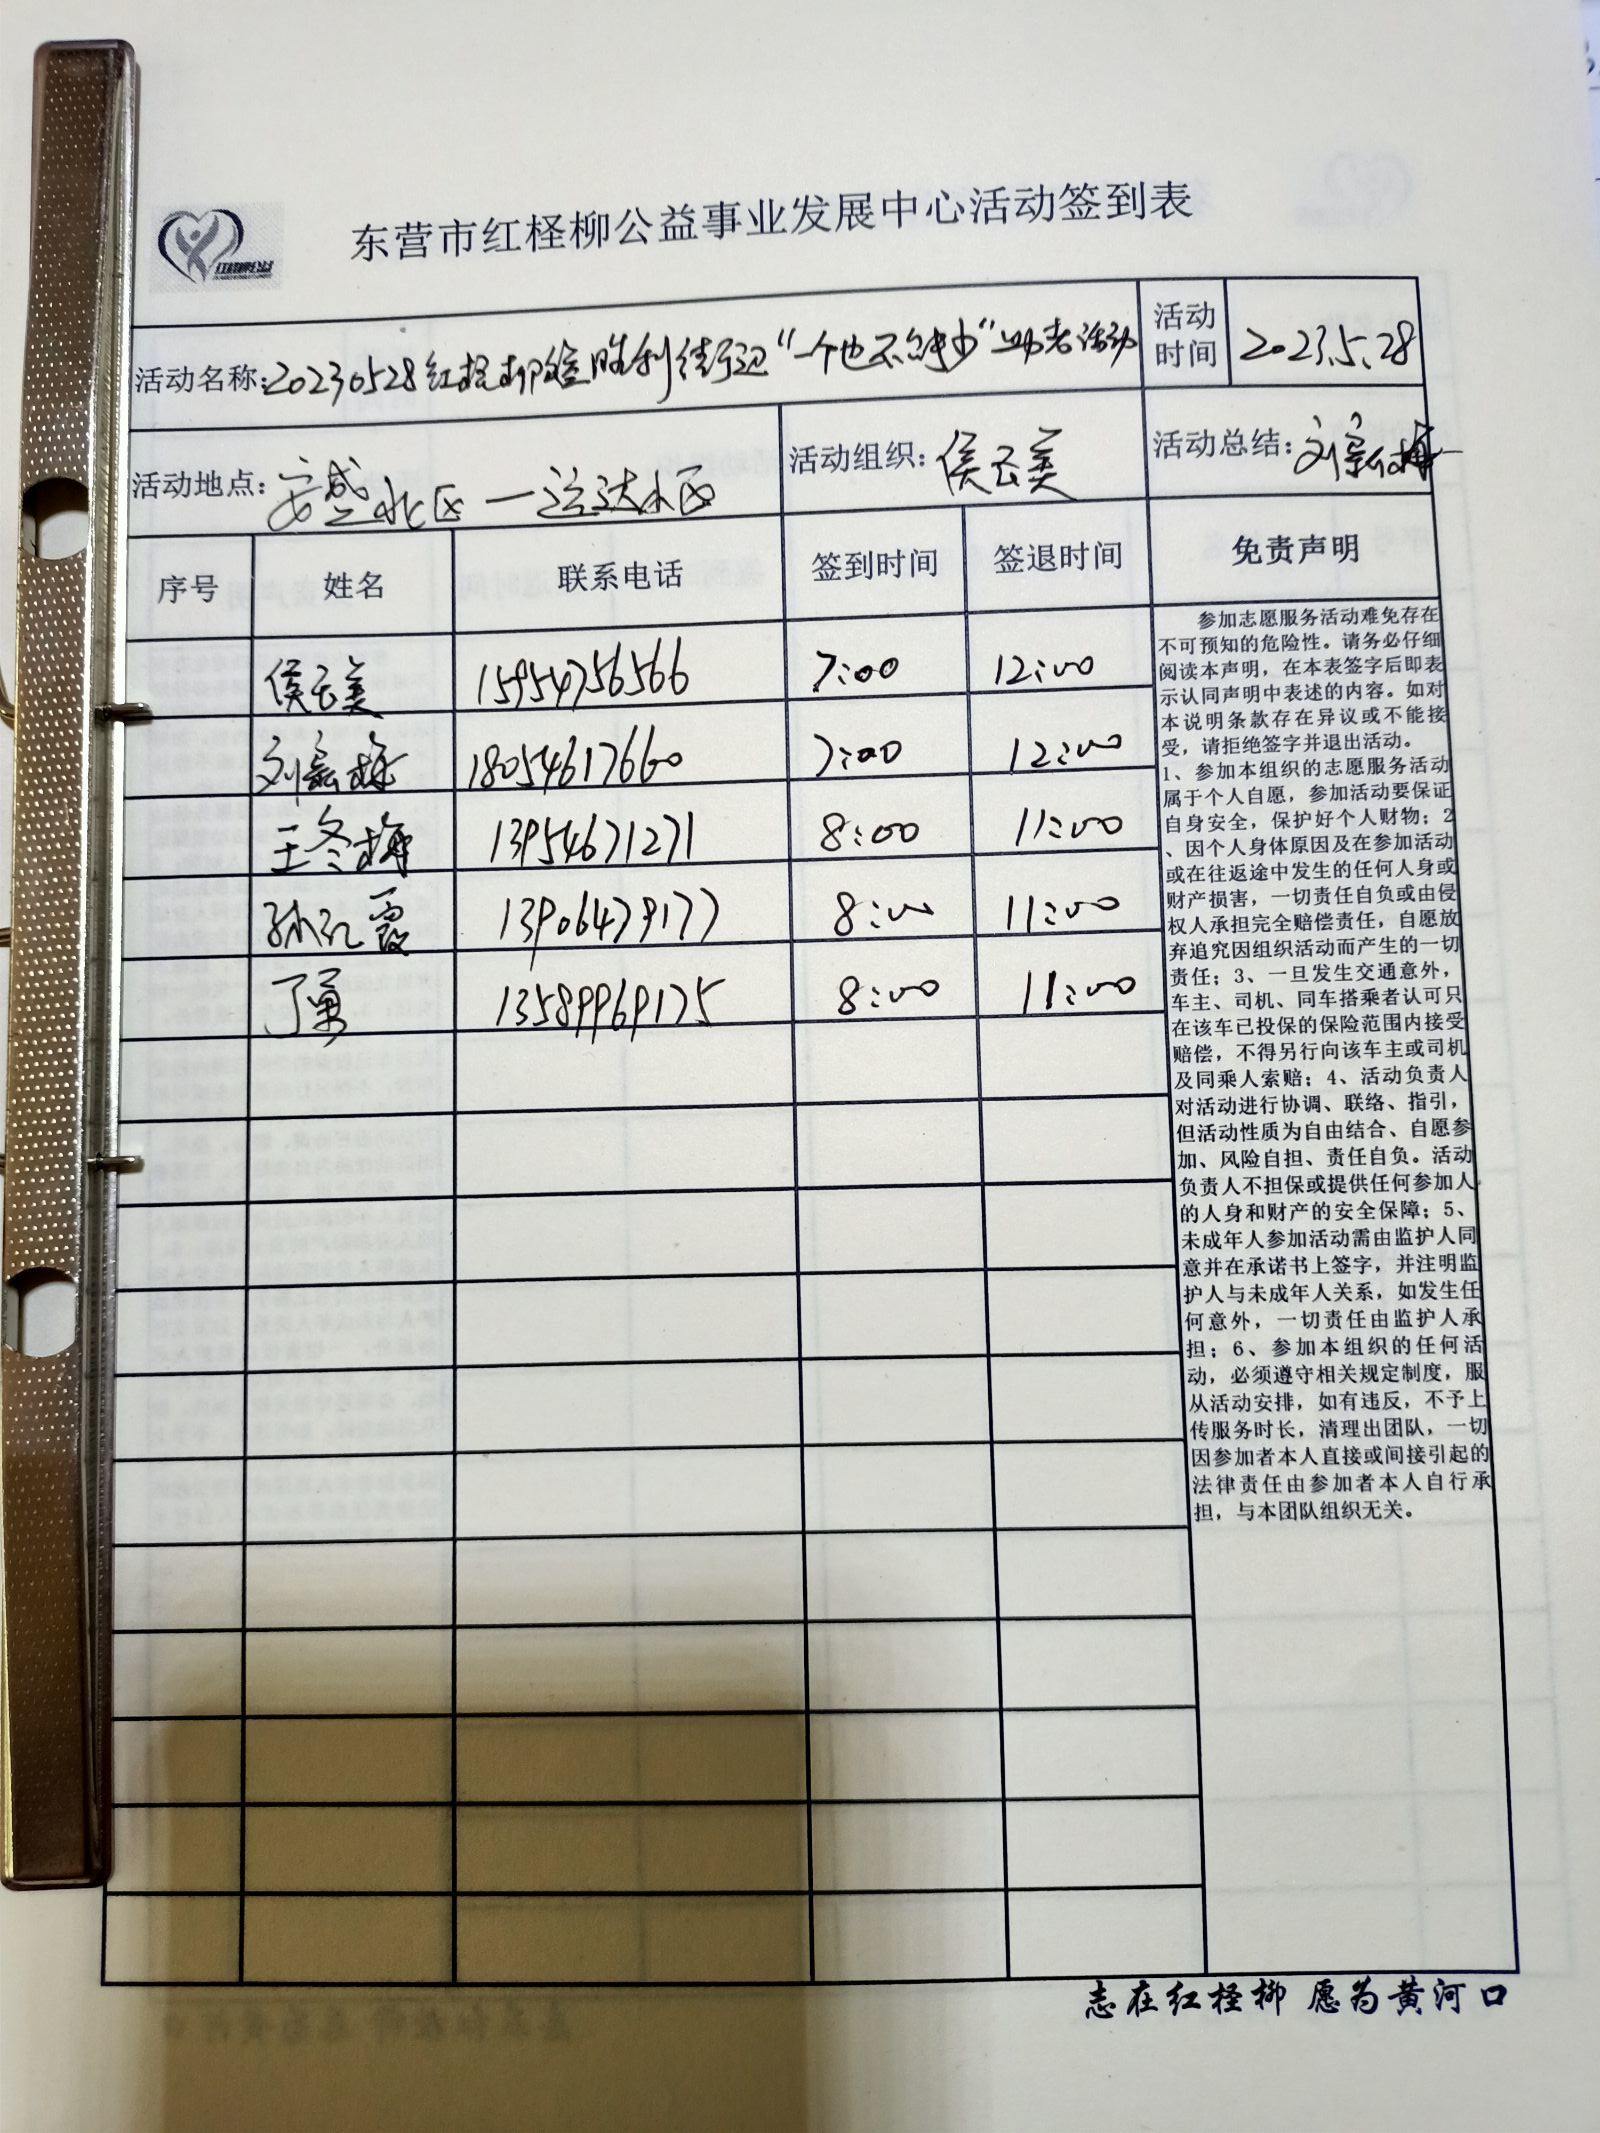 东营市红柽柳公益事业发展中心活动签到表
活动名称:20230528红柽柳 胜利街道"一个也不能少"助老活动
活动时间 2023.5.28
活动地点:安盛北区一运达小区
活动组织:侯云美
活动总结:刘 梅
序号 姓名 联系电话 签到时间 签退时间 免责声明
侯云美 15954756566 7:00 12:00
刘 梅 18054617660 7:00 12:00
王冬梅 13954671271 8:00 11:00
孙红霞 13906479177 8:00 11:00
丁勇 13589969175 8:00 11:00
参加志愿服务活动难免存在
不可预知的危险性。请务必仔细
阅读本声明，在本表签字后即表
示认同声明中表述的内容。如对
本说明条款存在异议或不能接
受，请拒绝签字并退出活动。
1、参加本组织的志愿服务活动
属于个人自愿，参加活动要保证
自身安全，保护好个人财物；2
、因个人身体原因及在参加活动
或在往返途中发生的任何人身或
财产损害，一切责任自负或由侵
权人承担完全赔偿责任，自愿放
弃追究因组织活动而产生的一切
责任；3、一旦发生交通意外，
车主、司机、同车搭乘者认可只
在该车已投保的保险范围内接受
赔偿，不得另行向该车主或司机
及同乘人索赔；4、活动负责人
对活动进行协调、联络、指引，
但活动性质为自由结合、自愿参
加、风险自担、责任自负。活动
负责人不担保或提供任何参加人
的人身和财产的安全保障；5、
未成年人参加活动需由监护人同
意并在承诺书上签字，并注明监
护人与未成年人关系，如发生任
何意外，一切责任由监护人承
担；6、参加本组织的任何活
动，必须遵守相关规定制度，服
从活动安排，如有违反，不予上
传服务时长，清理出团队，一切
因参加者本人直接或间接引起的
法律责任由参加者本人自行承
担，与本团队组织无关。
志在红柽柳 愿为黄河口